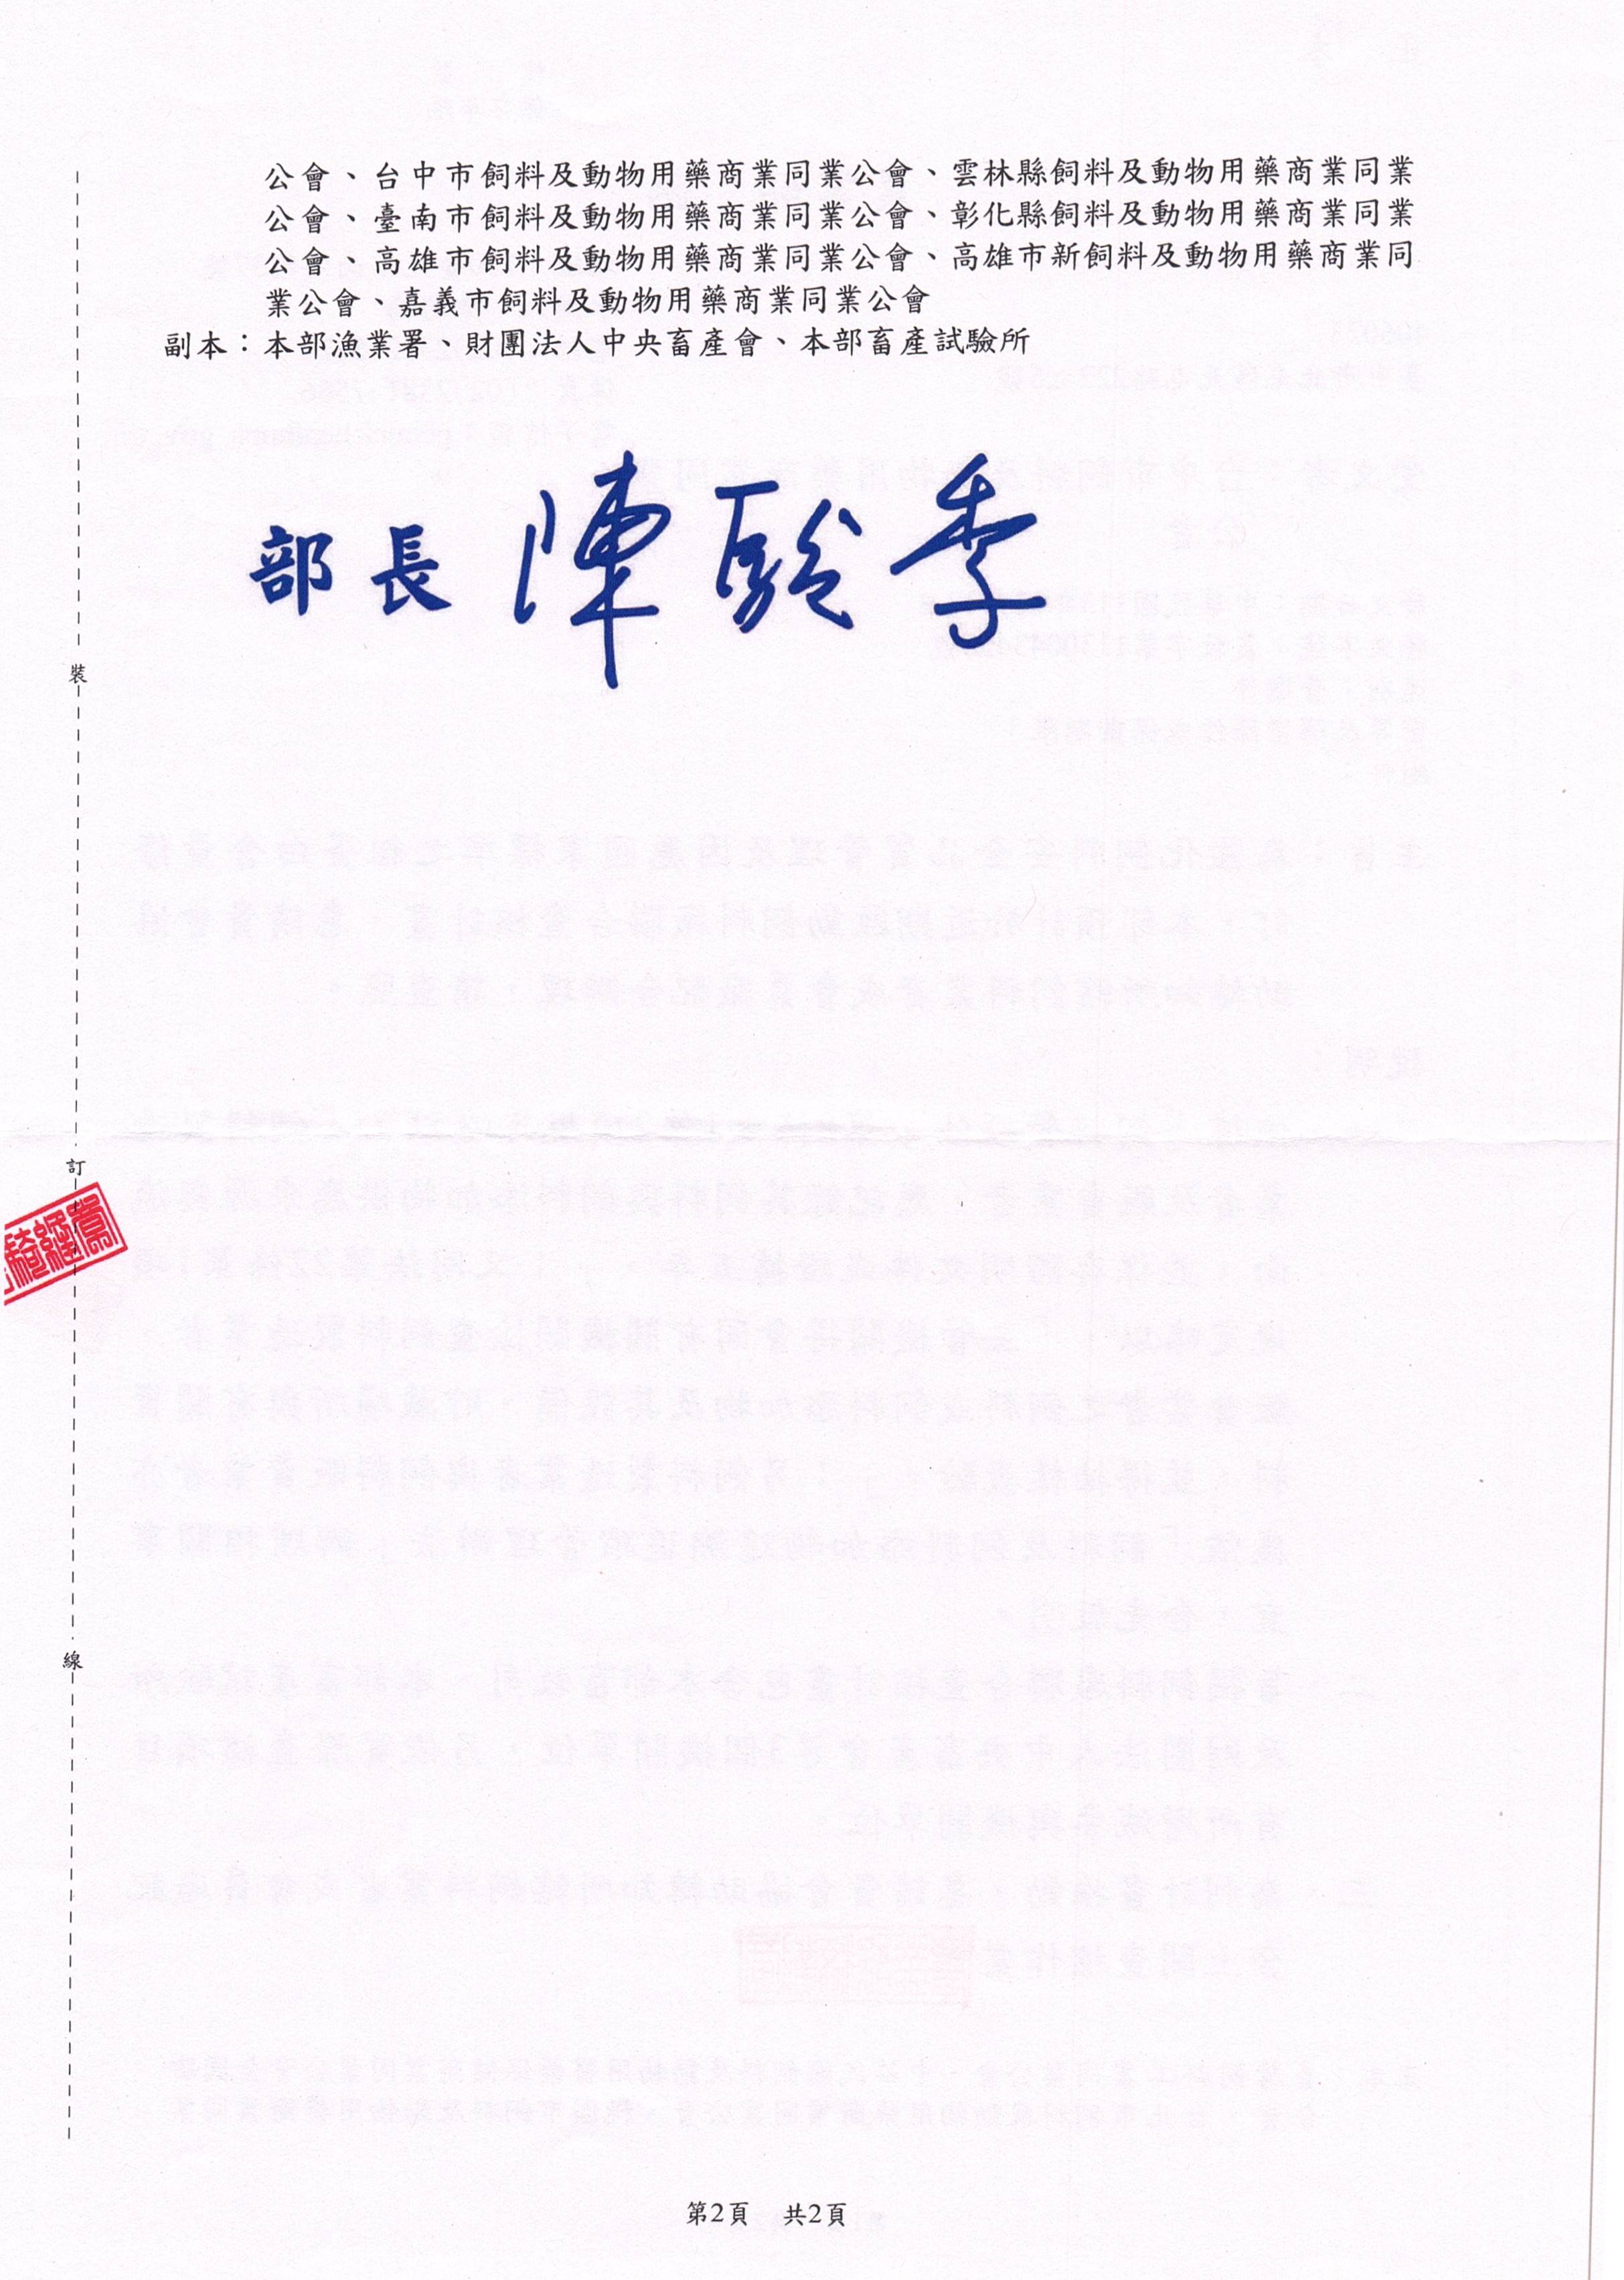 公會、台中市飼料及動物用藥商業同業公會、雲林縣飼料及動物用藥商業同業
公會、臺南市飼料及動物用藥商業同業公會、彰化縣飼料及動物用藥商業同業
公會、高雄市飼料及動物用藥商業同業公會、高雄市新飼料及動物用藥商業同
業公會、嘉義市飼料及動物用藥商業同業公會
副本：本部漁業署、財團法人中央畜產會、本部畜產試驗所
部長 陳駿季
裝
訂
線
第2頁 共2頁